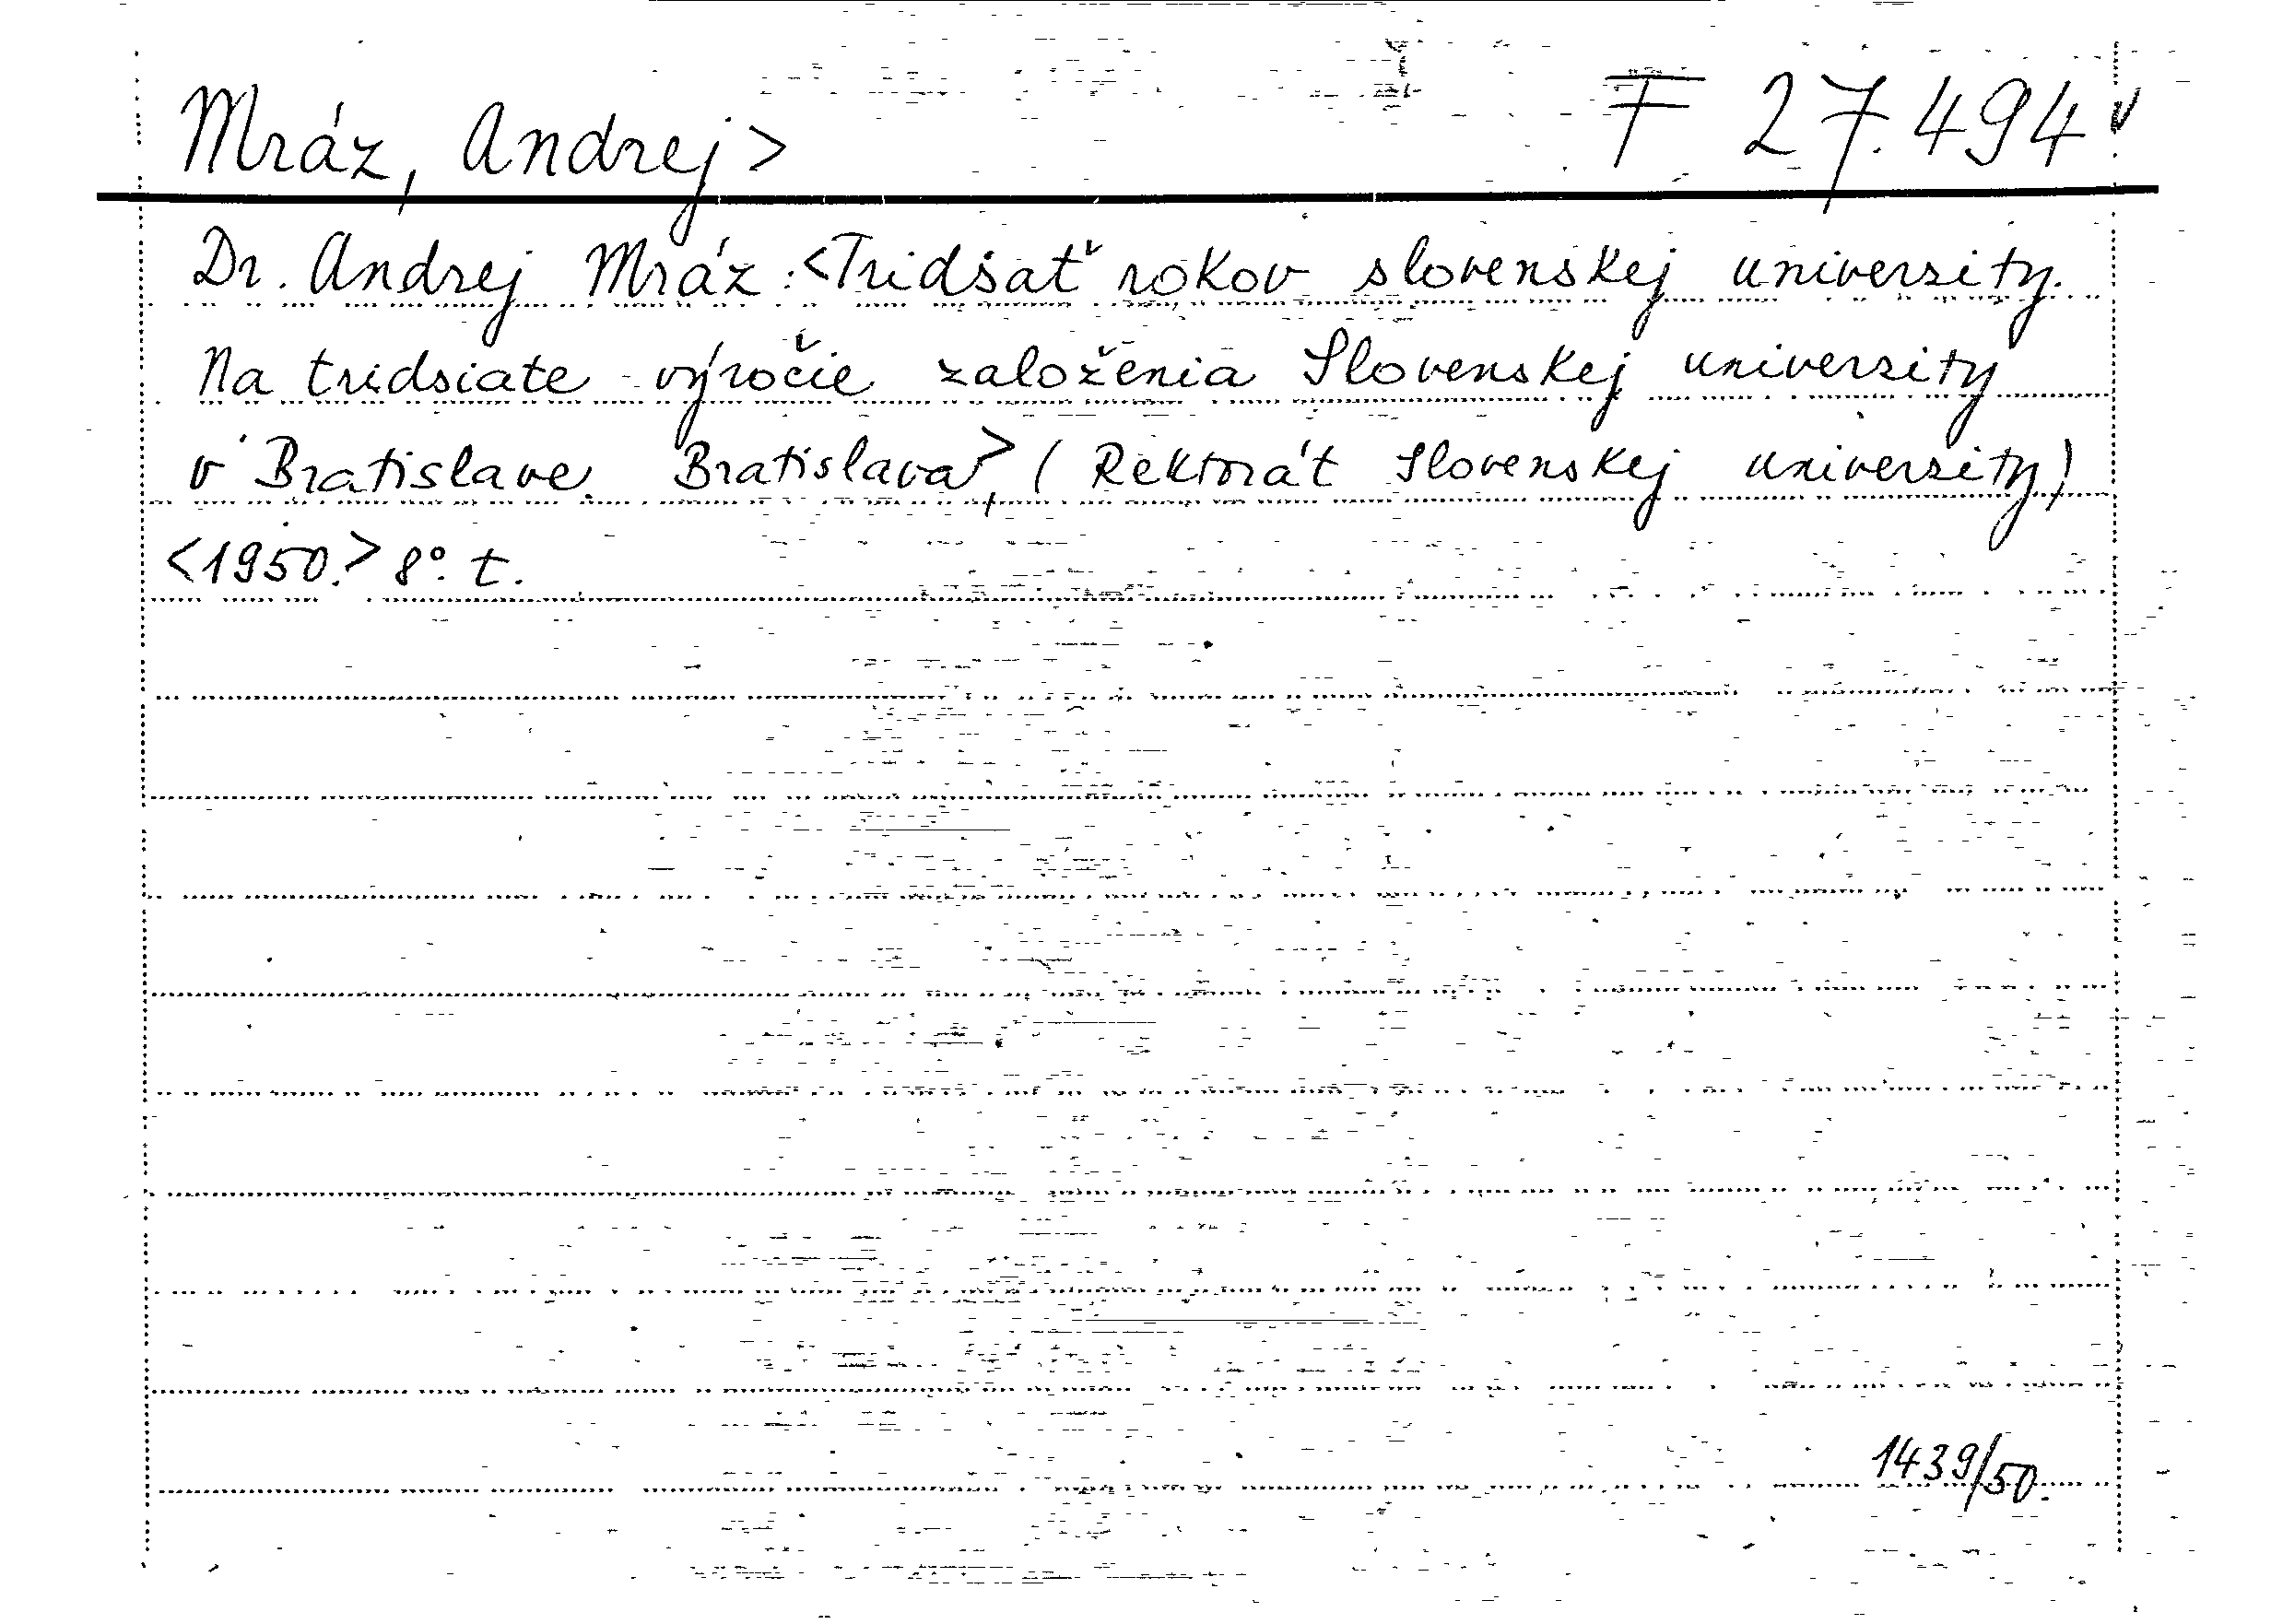 Mráz, Andrej> F 27.494 v
Dr. Andrej Mráz: <Tridsať rokov slovenskej university.
Na tridsiate výročie založenia Slovenskej university
v Bratislave. Bratislava>, (Rektorát Slovenskej university)
<1950.> 8°. t.
1439/50.